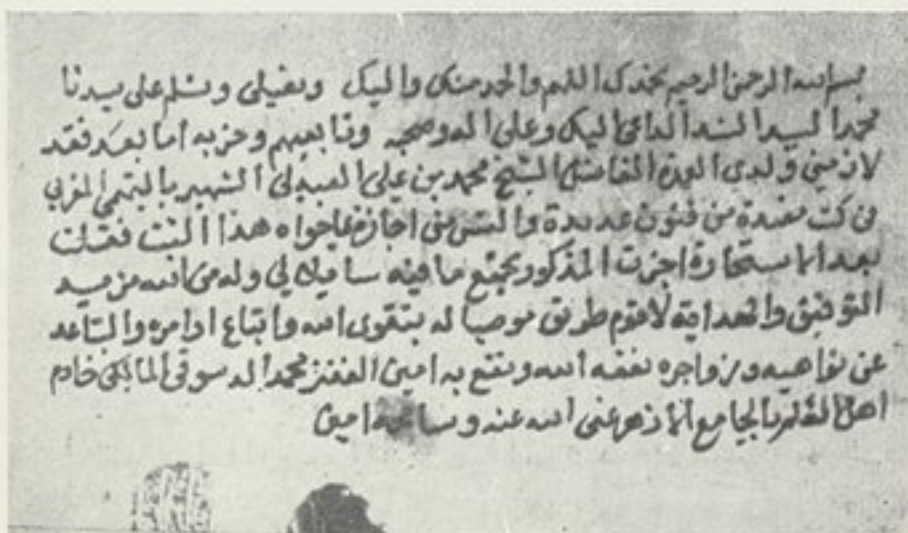 بسم الله الرحمن الرحيم نحمدك اللهم والحمد منك واليك ونصلي ونسلم على سيدنا
محمد السيد السند الداعي اليك وعلى اله وصحبه وتابعيهم وحزبه اما بعد فقد
لازمني ولدي الفاضل الشيخ محمد بن علي الشهير
في كتب مفيدة من فنون عديدة والتمس مني اجازة بما حواه هذا الثبت فقلت
بعد الاستخارة اجزت المذكور بجميع ما فيه سائلا لي وله من الله مزيد
التوفيق والهداية لاقوم طريق موصيا له بتقوى الله واتباع اوامره والتباعد
عن نواهيه وزواجره نفعه الله ونفع به امين الفقير محمد الدسوقي المالكي خادم
اهل بالجامع الازهر عفى الله عنه وسامحه امين